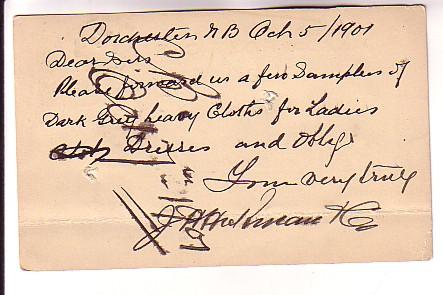 Dorchester N B Oct 5/1901
Dear Sirs
Please forward us a few Samples of
Dark Grey heavy Cloths for Ladies
Dresses and Oblige
Yours very truly
& Co